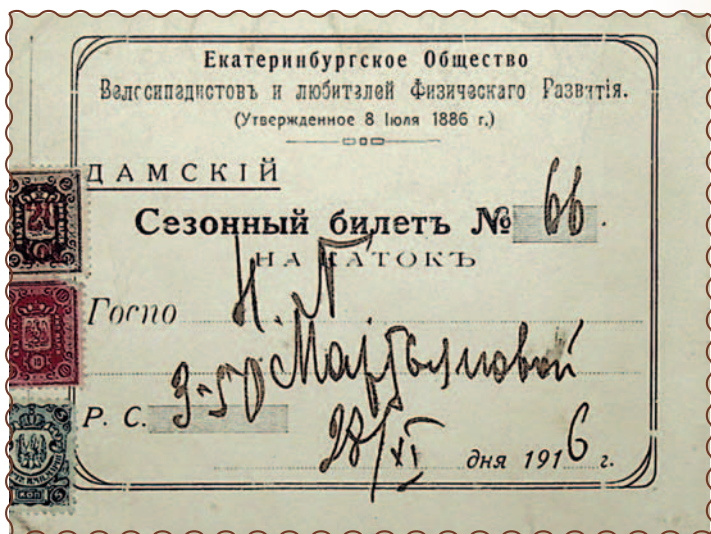 Екатеринбургское Общество
Велосипедистовъ и любителей Физическаго Развитія.
(Утвержденное 8 Іюля 1886 г.)
ДАМСКІЙ
Сезонный билетъ № 66.
НА КАТОКЪ
Госпо Н.
Мартьяновой
Р. С. 3-50
28/XI дня 1916 г.